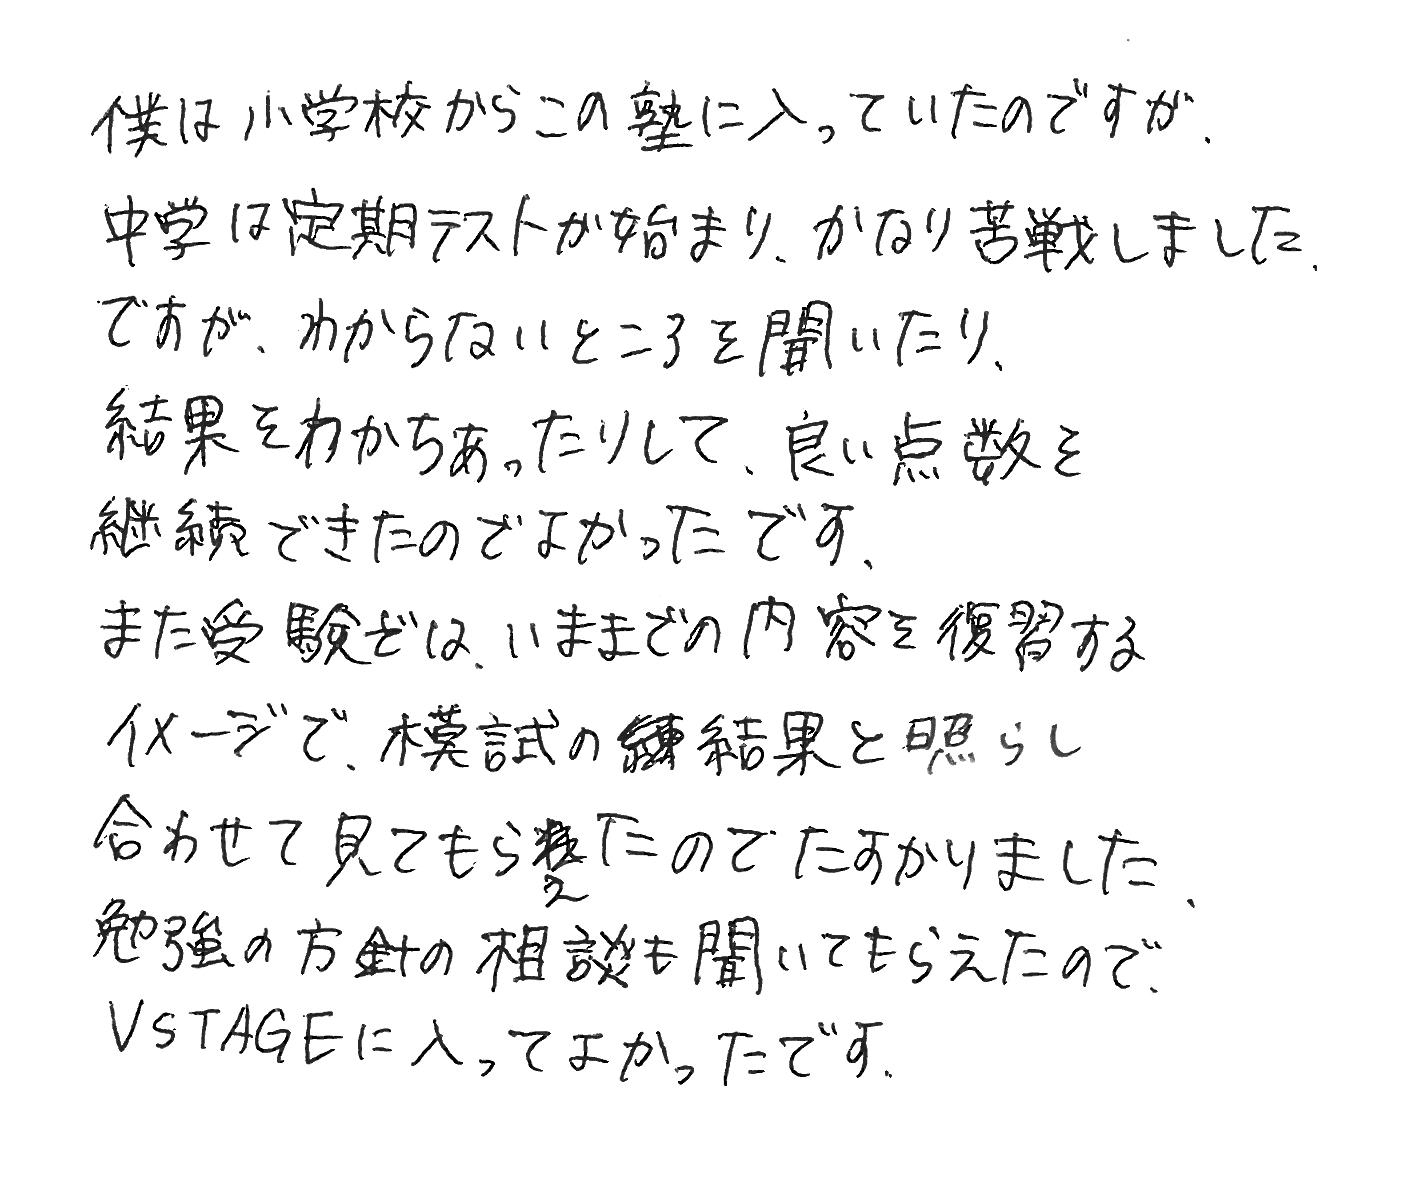 僕は小学校からこの塾に入っていたのですが、
中学は定期テストが始まり、かなり苦戦しました。
ですが、わからないところを聞いたり、
結果をわかちあったりして、良い点数を
継続できたのでよかったです。
また受験では、いままでの内容を復習する
イメージで、模試の結果と照らし
合わせて見てもらえたのでたすかりました。
勉強の方針の相談も聞いてもらえたので、
VSTAGEに入ってよかったです。